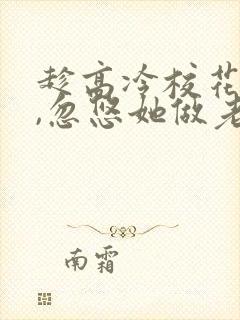 趁高冷校花
,忽悠她做老
南霜